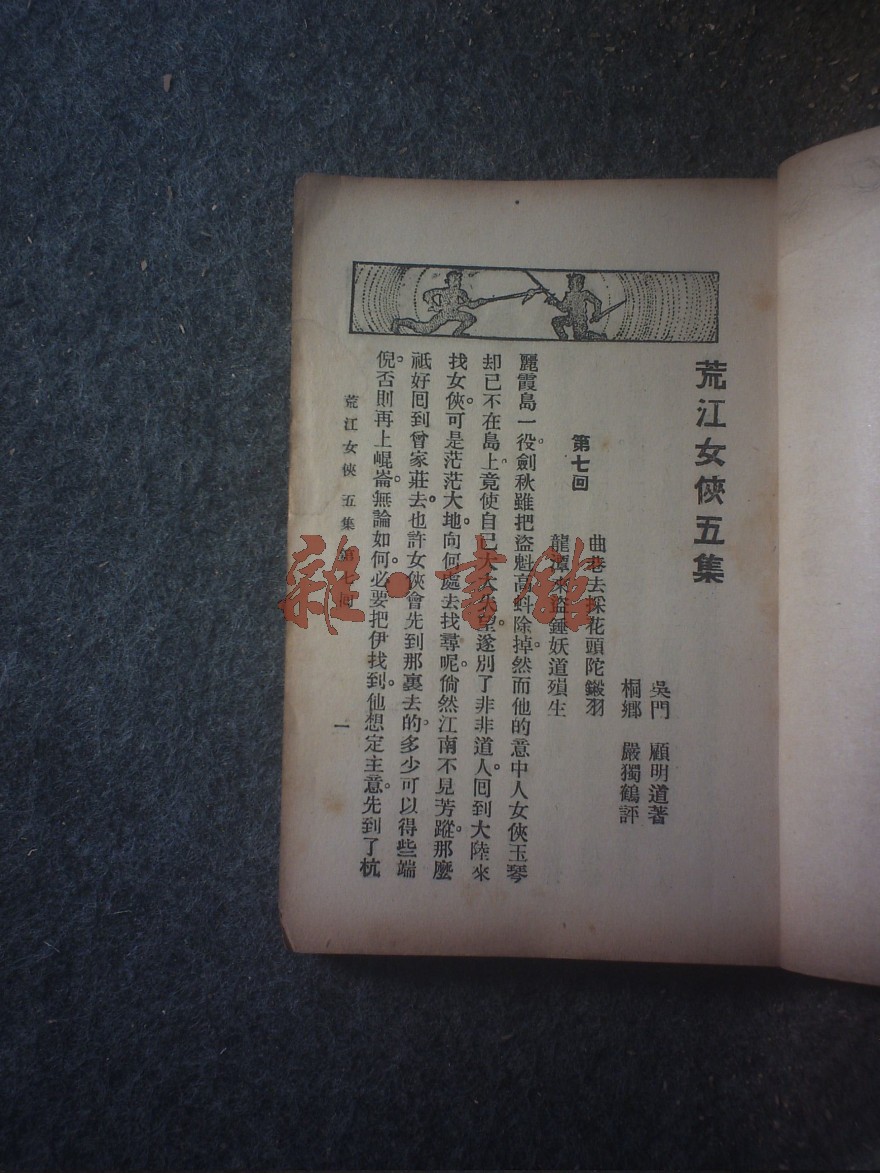 荒江女俠五集
吳門　顧明道著
桐鄉　嚴獨鶴評
第七回
曲巷去採花頭陀鎩羽
龍潭來盜錘妖道殞生
麗霞島一役。劍秋雖把盜魁高蚪除掉。然而他的意中人女俠玉琴
却已不在島上。竟使自己大大失望。遂別了非非道人。回到大陸來
找女俠。可是茫茫大地。向何處去找尋呢。倘然江南不見芳蹤。那麼
祇好回到曾家莊去。也許女俠會先到那裏去的。多少可以得些端
倪。否則再上崐崙。無論如何。必要把伊找到。他想定主意。先到了杭
荒江女俠　五集　第七回
一
雜·書館